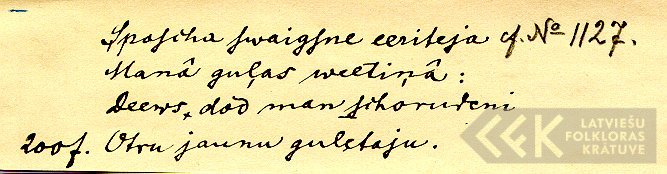 Sposcha swaigsne eeriteja cf. № 1127.
Manâ guļas weetiņâ:
Deews, dod man schoruđeni
200f. Otru jaunu gulętaju.
LATVIEŠU
FOLKLORAS
KRĀTUVE